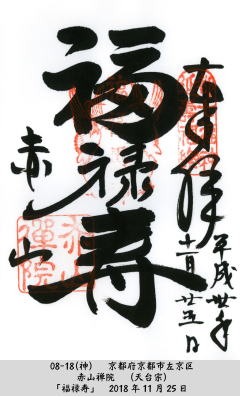 奉拝
平成卅年
十一月廿五日
福禄寿
赤山
赤山禅院
08-18(神) 京都府京都市左京区
赤山禅院 (天台宗)
「福禄寿」 2018年11月25日